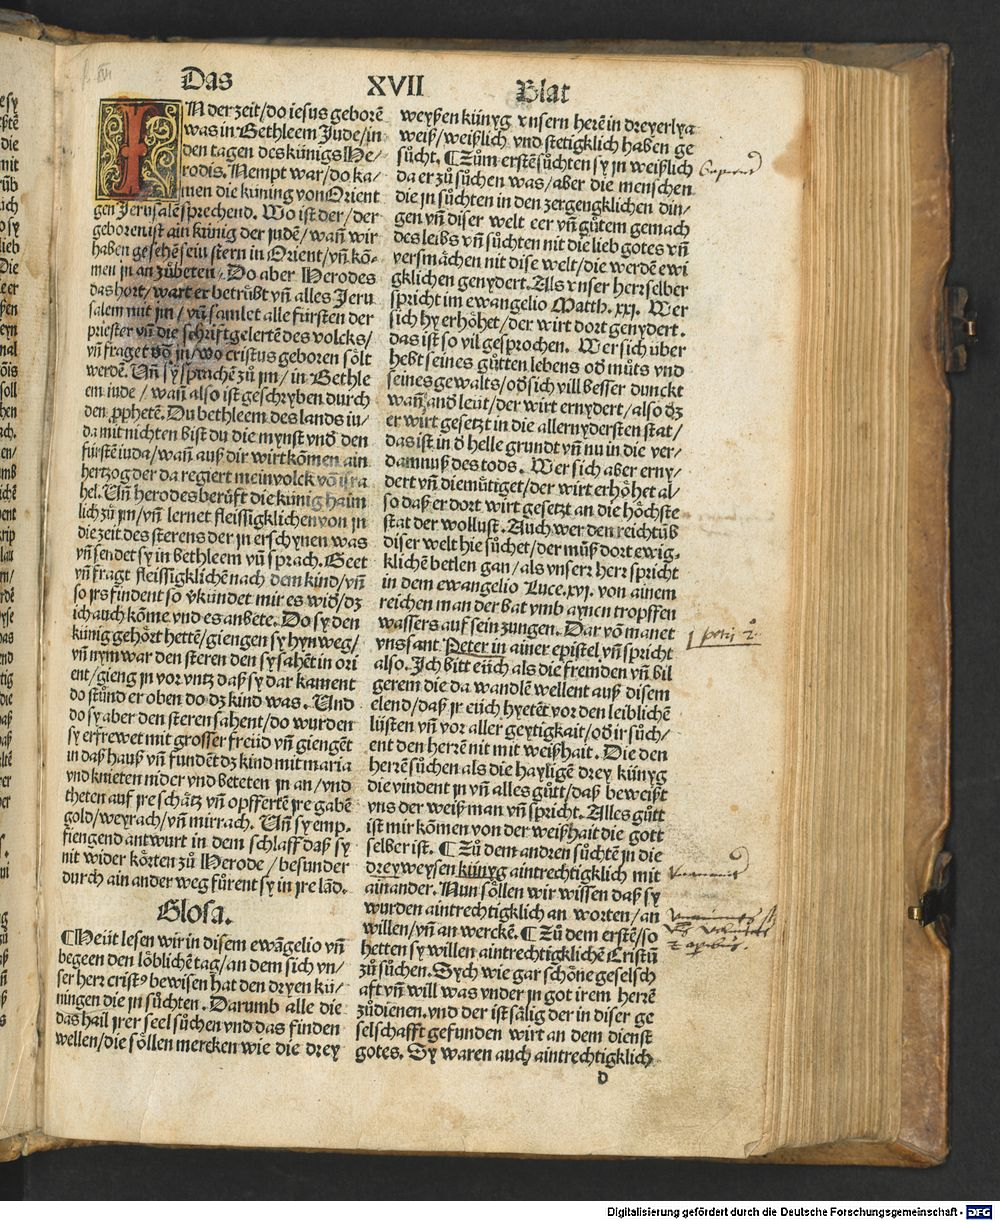 Das XVII Blat
IN der zeit/do iesus geborē
was in Bethleem Jude/in
den tagen des künigs He-/
rodis. Nempt war/do ka-/
men die küning von Orient
gen Jerusalē sprechend. Wo ist der/der
geboren ist ain künig der judē/wañ wir
haben gesehē sein stern in Orient/vñ kō-
men jn an zůbeten. Do aber Herodes
das hort/wart er betrůbt vñ alles Jeru
salem mit jm/vñ samlet alle fürsten der
priester vñ die schriftgelertē des volcks/
vñ fraget vō jn/wo cristus geboren sölt
werdē. Vñ sy sprachē zů jm/in Bethle
em iude/wañ also ist geschryben durch
den ꝓphetē. Du bethleem des lands iu-/
da mit nichten bist du die mynst vnd den
fürstē iuda/wañ auß dir wirt kōmen ain
hertzog der da regiert mein volck von isra
hel. Vñ herodes berůft die künig haim
lich zů jm/vñ lernet fleissigklichen von jn
die zeit des sterens der jn erschynen was
vñ sendet sy in bethleem vñ sprach. Geet
vñ fragt fleissigklichē nach dem kind/vñ
so jrs findent so v̄kündet mir es wið/dz
ich auch kōme vnd es anbete. Do sy den
künig gehört hettē/giengen sy hyn weg/
vñ nym war den steren den sy sahēt in ori
ent/gieng jn vor vntz daß sy dar kament
do stůnd er oben do dz kind was. Und
do sy aber den steren sahent/do wurden
sy erfrewet mit grosser freüd vñ giengēt
in daß hauß vñ fundēt dz kind mit maria
vnd knieten nider vnd beteten jn an/vnd
theten auf jre schätz vñ opffertē jre gabē
gold/weyrach/vñ mirrach. Vñ sy emp-
fiengend antwurt in dem schlaff daß sy
nit wider körten zů Herode/besunder
durch ain ander weg fůrent sy in jre lād.
Glosa.
⸿Heüt lesen wir in disem ewāgelio vñ
begeen den löblichē tag/an dem sich vn-/
ser herr cristꝰ bewisen hat den dryen kü-/
ningen die jn sůchten. Darumb alle die
das hail jrer seel sůchen vnd das finden
wellen/die söllen mercken wie die drey
weysen künyg vnsern herē in dreyerlya
weiß/weißlich vnd stetigklich haben ge
sůcht. ⸿Zům erstē sůchten sy jn weißlich
da er zů sůchen was/aber die menschen
die jn sůchten in den zergengklichen din-/
gen vñ diser welt eer vñ gůtem gemach
des leibs vñ sůchten nit die lieb gotes vñ
versmächen nit dise welt/die werdē ewi
gklichen genydert. Als vnser herr selber
spricht im ewangelio Matth. xxj. Wer
sich hy erhöhet/der wirt dort genydert.
das ist so vil gesprochen. Wer sich über
hebt seines gůtten lebens oð můts vnd
seines gewalts/oð sich vill besser dunckt
wañ and leüt/der wirt ernydert/also ðz
er wirt gesetzt in die allernydersten stat/
das ist in ð helle grundt vñ nu in die ver-/
damnuß des tods. Wer sich aber erny-/
dert vñ diemůtiget/der wirt erhöhet al-/
so daß er dort wirt gesetzt an die höchste
stat der wollust. Auch wer den reichtůb
diser welt hie sůchet/der můß dort ewig-
klichē betlen gan/als vnser herr spricht
in dem ewangelio Luce. xvj. von ainem
reichen man der bat vmb aynen tropffen
wassers auf sein zungen. Dar vō manet
vns sant Peter in ainer epistel vñ spricht
also. Ich bitt eüch als die fremden vñ bil
gerem die da wandlē wellent auß disem
elend/daß jr eüch hyetēt vor den leiblichē
lüsten vñ vor aller geytigkait/oð ir sůch/
ent den herrē nit mit weißhait. Die den
herrē sůchen als die hayligē drey künyg
die vindent jn vñ alles gůtt/daß beweißt
vns der weiß man vñ spricht. Alles gůtt
ist mir kōmen von der weißhait die gott
selber ist. ⸿Zů dem andren sůchtē jn die
drey weysen künyg aintrechtigklich mit
ainander. Nun söllen wir wissen daß sy
wurden aintrechtigklich an worten/an
willen/vñ an werckē. ⸿Zů dem erstē/so
hetten sy willen aintrechtigklichē Cristū
zů sůchen. Sych wie gar schöne geselsch
aft vñ will was vnder jn got irem herrē
zůdienen. vnd der ist sälig der in diser ge
selschafft gefunden wirt an dem dienst
gotes. Sy waren auch aintrechtigklich
d
1 petri 2º
Digitalisierung gefördert durch die Deutsche Forschungsgemeinschaft - DFG